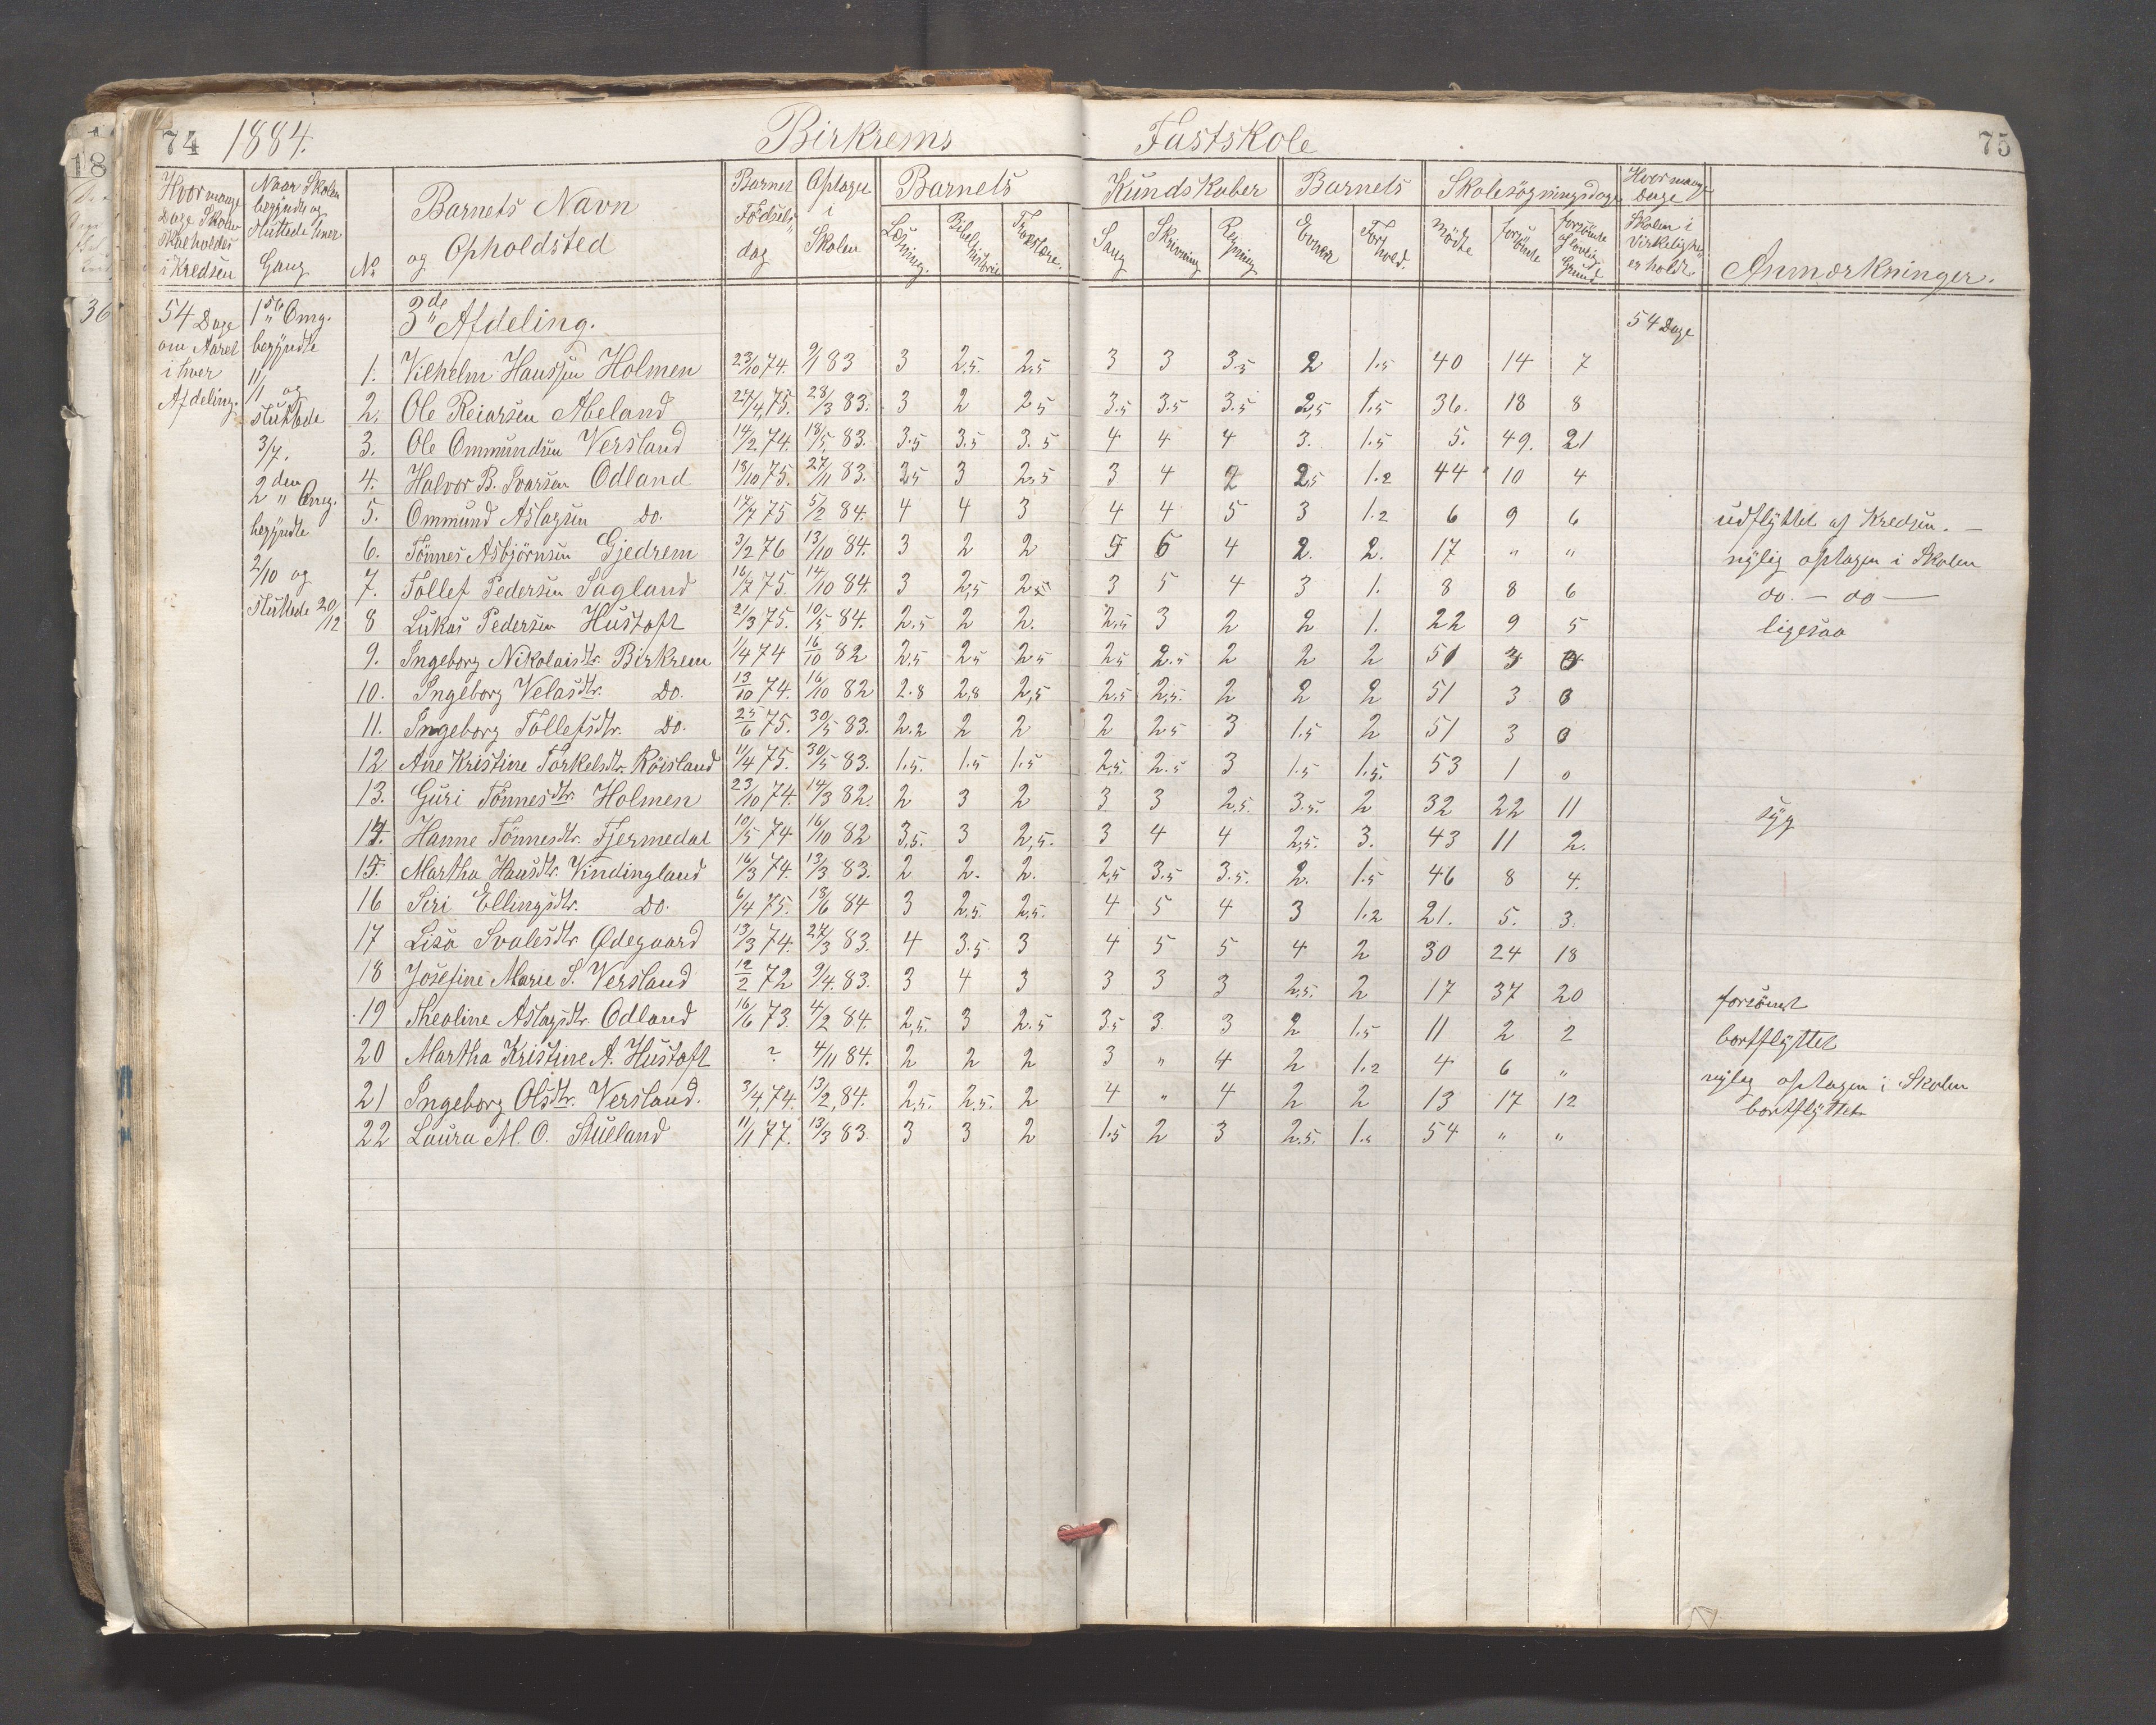 74 1884. Birkrems Fastskole 75
Hvormange Dage Skolen Skal holdes i Kredsen
Naar Skolen begyndte og sluttede hver Gang
No
Barnets Navn og Opholdsted
Barnets Fødsels dag
Optaget i Skolen
Barnets Kundskaber
Læsning. Bibelhistorie Troeslære. Sang Skrivning Regning
Barnets
Evner Forhold.
Skolesøgningsdage
mødte forsømte forsømte af lovlig Grund
Hvormange Dage Skolen i Virkelighed er holdt.
Anmærkninger.
54 Dage om Aaret i hver Afdeling.
1ste Omg. begyndte 11/1 og sluttede 3/7.
2den Omg. begyndte 2/10 og sluttede 20/12
3de Afdeling. 54 Dage
1. Vilhelm Hansen Holmen 23/10 74. 9/1 83 3 2.5. 2.5 3 3 3.5 2 1.5 40 14 7
2. Ole Reiarsen Abeland 27/4 75. 28/3 83. 3 2 2.5 3.5 3.5 3.5 2,5 1.5 36. 18 8
3. Ole Ommundsen Versland 14/2 74. 18/5 83. 3.5 3.5 3.5 4 4 4 3. 1.5 5. 49. 21
4. Halvor B. Ivarsen Odland 18/10 75. 27/11 83. 3,5 3 2.5 3 4 2 2,5 1.2 44 10 4
5. Ommund Aslagsen Do. 75 5/2 84. 4 4 3 4 4 5 3 1.2 6 9 6 udflyttet af Kredsen. —
6. Tønnes Asbjørnsen Gjedrem 3/2 76 13/10 84. 3 2 2 5 6 4 2. 2. 17 " " nylig optagen i Skolen
7. Tollef Pedersen Sagland 16/7 75. 14/10 84. 3 2,5 2,5 3 5 4 3 1. 8 8 6 do. — do —
8 Lukas Pedersen Hustoft 21/3 75. 10/5 84. 2.5 2 2. 2.5 3 2 2 1. 22 9 5 ligesaa
9. Ingeborg Nikolaisdtr. Birkrem 1/4 74 16/10 82 2.5 2.5 2.5 2.5 2.5 2 2 2 51 3 0
10. Ingeborg Velasdtr. Do. 13/10 74. 16/10 82 2.8 2,8 2,5 2.5 2,5. 2 2 2 51 3 0
11. Ingeborg Tollefsdtr. Do. 25/6 75. 30/5 83. 2.2 2 2 2 2.5 3 1.5 2 51 3 0
12 Ane Kristine Torkelsdtr. Röisland 11/4 75. 30/5 83. 1.5. 1.5 1.5 2,5. 2.5 3 1.5 1.5. 53 1 0
13. Guri Tønnesdtr. Holmen 23/10 74. 14/3 82. 2 3 2 3 3 2,5. 3.5. 2 32 22 11 syg
14. Hanne Tønnesdtr. Fjermedal 10/5 74 16/10 82 3,5. 3 2,5. 3 4 4 2,5. 3. 43 11 2.
15. Martha Hansdtr. Vindingland 16/3 74. 13/3 83. 2 2. 2. 2,5 3.5 3.5. 2. 1.5 46 8 4.
16 Siri Ellingsdtr. Do. 6/4 75. 18/6 84 3 2,5. 2,5. 4 5 4 3 1.2 21. 5. 3.
17 Lisa Svalesdtr Ødegaard 13/3 74. 27/3 83. 4 3.5 3 4 5 5 4 2 30 24 18
18 Josefine Marie S. Versland 12/2 72 9/4. 83. 3 4 3 3 3 3 2,5. 2 17 37 20 forsømt
19 Theoline Aslagsdtr. Odland 16/6 73. 4/2 84. 2,5. 3 2.5 3.5 3 3 2 1.5 11 2 2 bortflyttet
20 Martha Kristine A. Hustoft ? 4/11 84. 2 2 2 3 " 4 2 1.2 4 6 " nylig optagen i Skolen
21 Ingeborg Olsdtr. Versland. 3/4 74. 13/2, 84. 2,5. 2,5. 2 4 " 4 2 2 13 17 12 bortflyttet
22 Laura M. O. Stueland 11/1 77. 13/3 83. 3 3 2 1.5 2 3 2.5. 1.5 54 " "